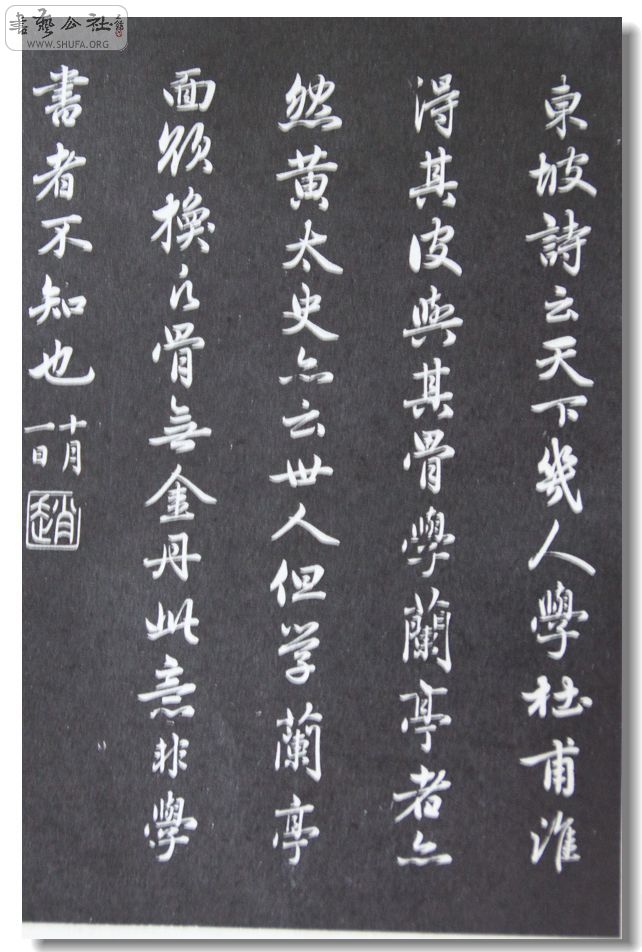 書藝公社
WWW.SHUFA.ORG
東坡詩云天下幾人學杜甫誰
得其皮與其骨學蘭亭者亦
然黃太史亦云世人但学蘭亭
面欲換凡骨無金丹此意非學
書者不知也
十月
一日
趙